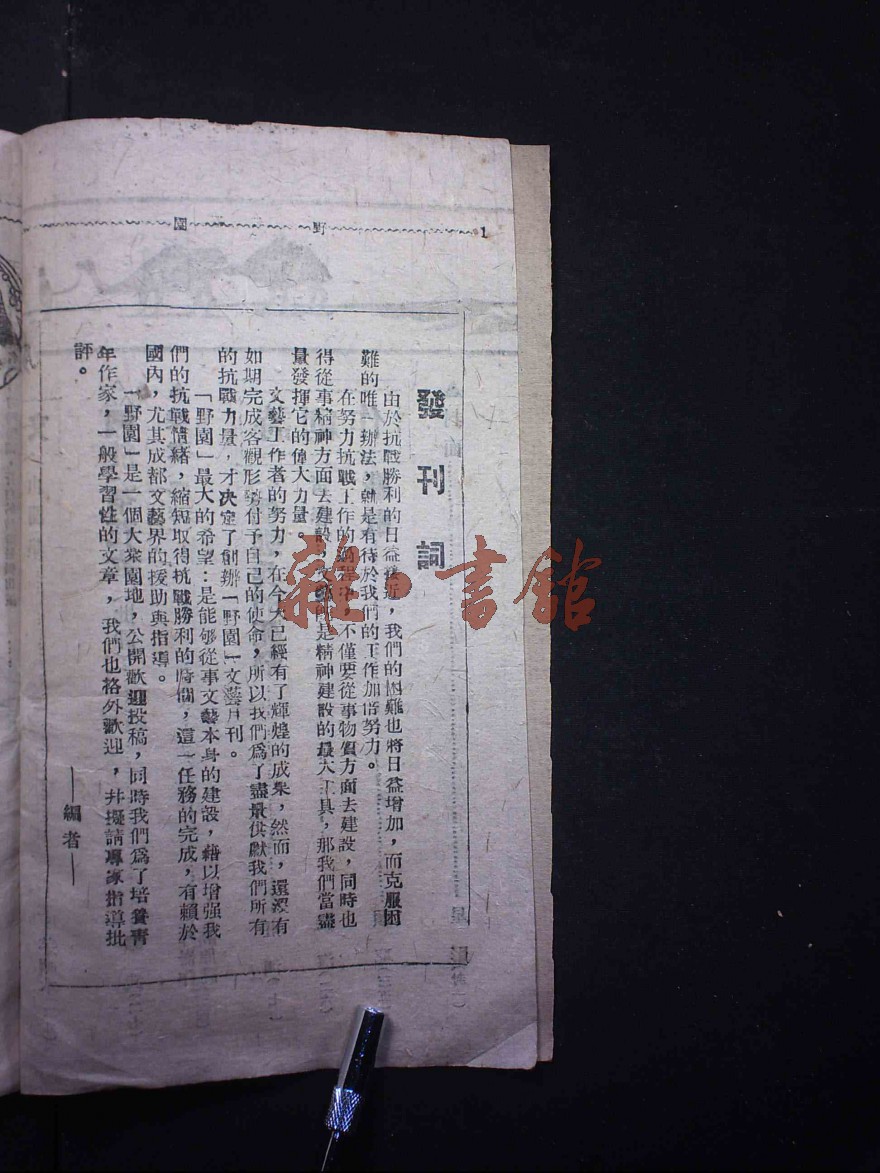 野園
1
發刊詞
由於抗戰勝利的日益接近，我們的困難也將日益增加，而克服困
難的唯一辦法，就是有待於我們的工作加倍努力。
在努力抗戰工作的過程中，不僅要從事物質方面去建設，同時也
得從事精神方面去建設，文藝是精神建設的最大工具，那我們當盡
量發揮它的偉大力量。
文藝工作者的努力，在今天已經有了輝煌的成果，然而，還沒有
如期完成客觀形勢付予自己的使命，所以我們爲了盡最供獻我們所有
的抗戰力量，才决定了創辦「野園」文藝月刊。
「野園」最大的希望：是能够從事文藝本身的建設，藉以增强我
們的抗戰情緒，縮短取得抗戰勝利的時間，這一任務的完成，有賴於
國內，尤其成都文藝界的援助與指導。
「野園」是一個大衆園地，公開歡迎投稿，同時我們爲了培養靑
年作家，一般學習性的文章，我們也格外歡迎，并擬請專家指導批
評。
——編者——
雜·書館